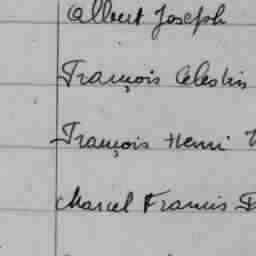 Albert Joseph
François Celestin
François Henri
Marcel Francis